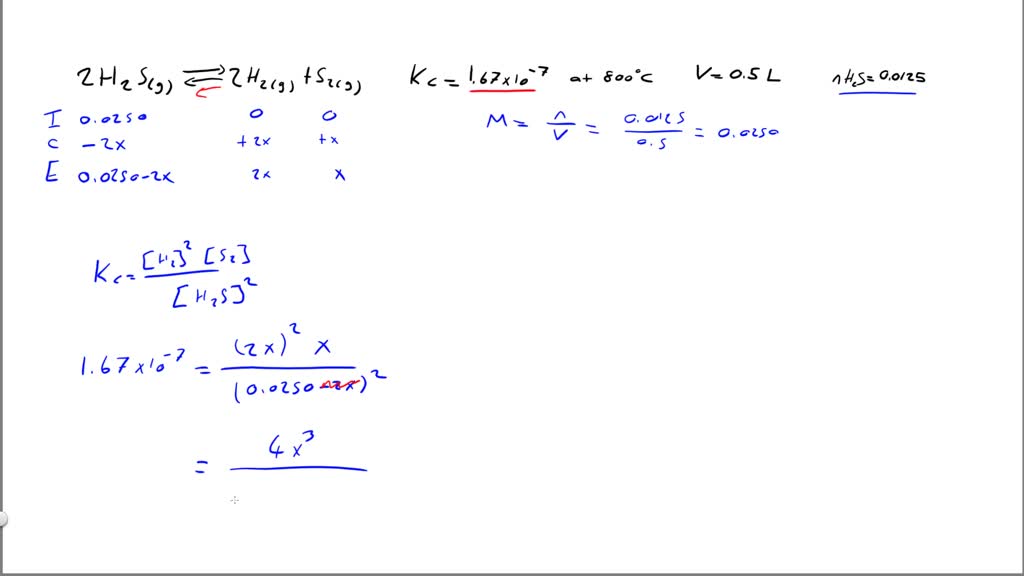 2H₂S(g) ⇌ 2H₂(g) + S₂(g) Kc = 1.67x10⁻⁷ at 800°C V = 0.5 L nH₂S = 0.0125
I 0.0250 0 0
C -2x +2x +x
E 0.0250-2x 2x x
M = n/V = 0.0125/0.5 = 0.0250
Kc = [H₂]² [S₂] / [H₂S]²
1.67x10⁻⁷ = (2x)² x / (0.0250-2x)²
= 4x³